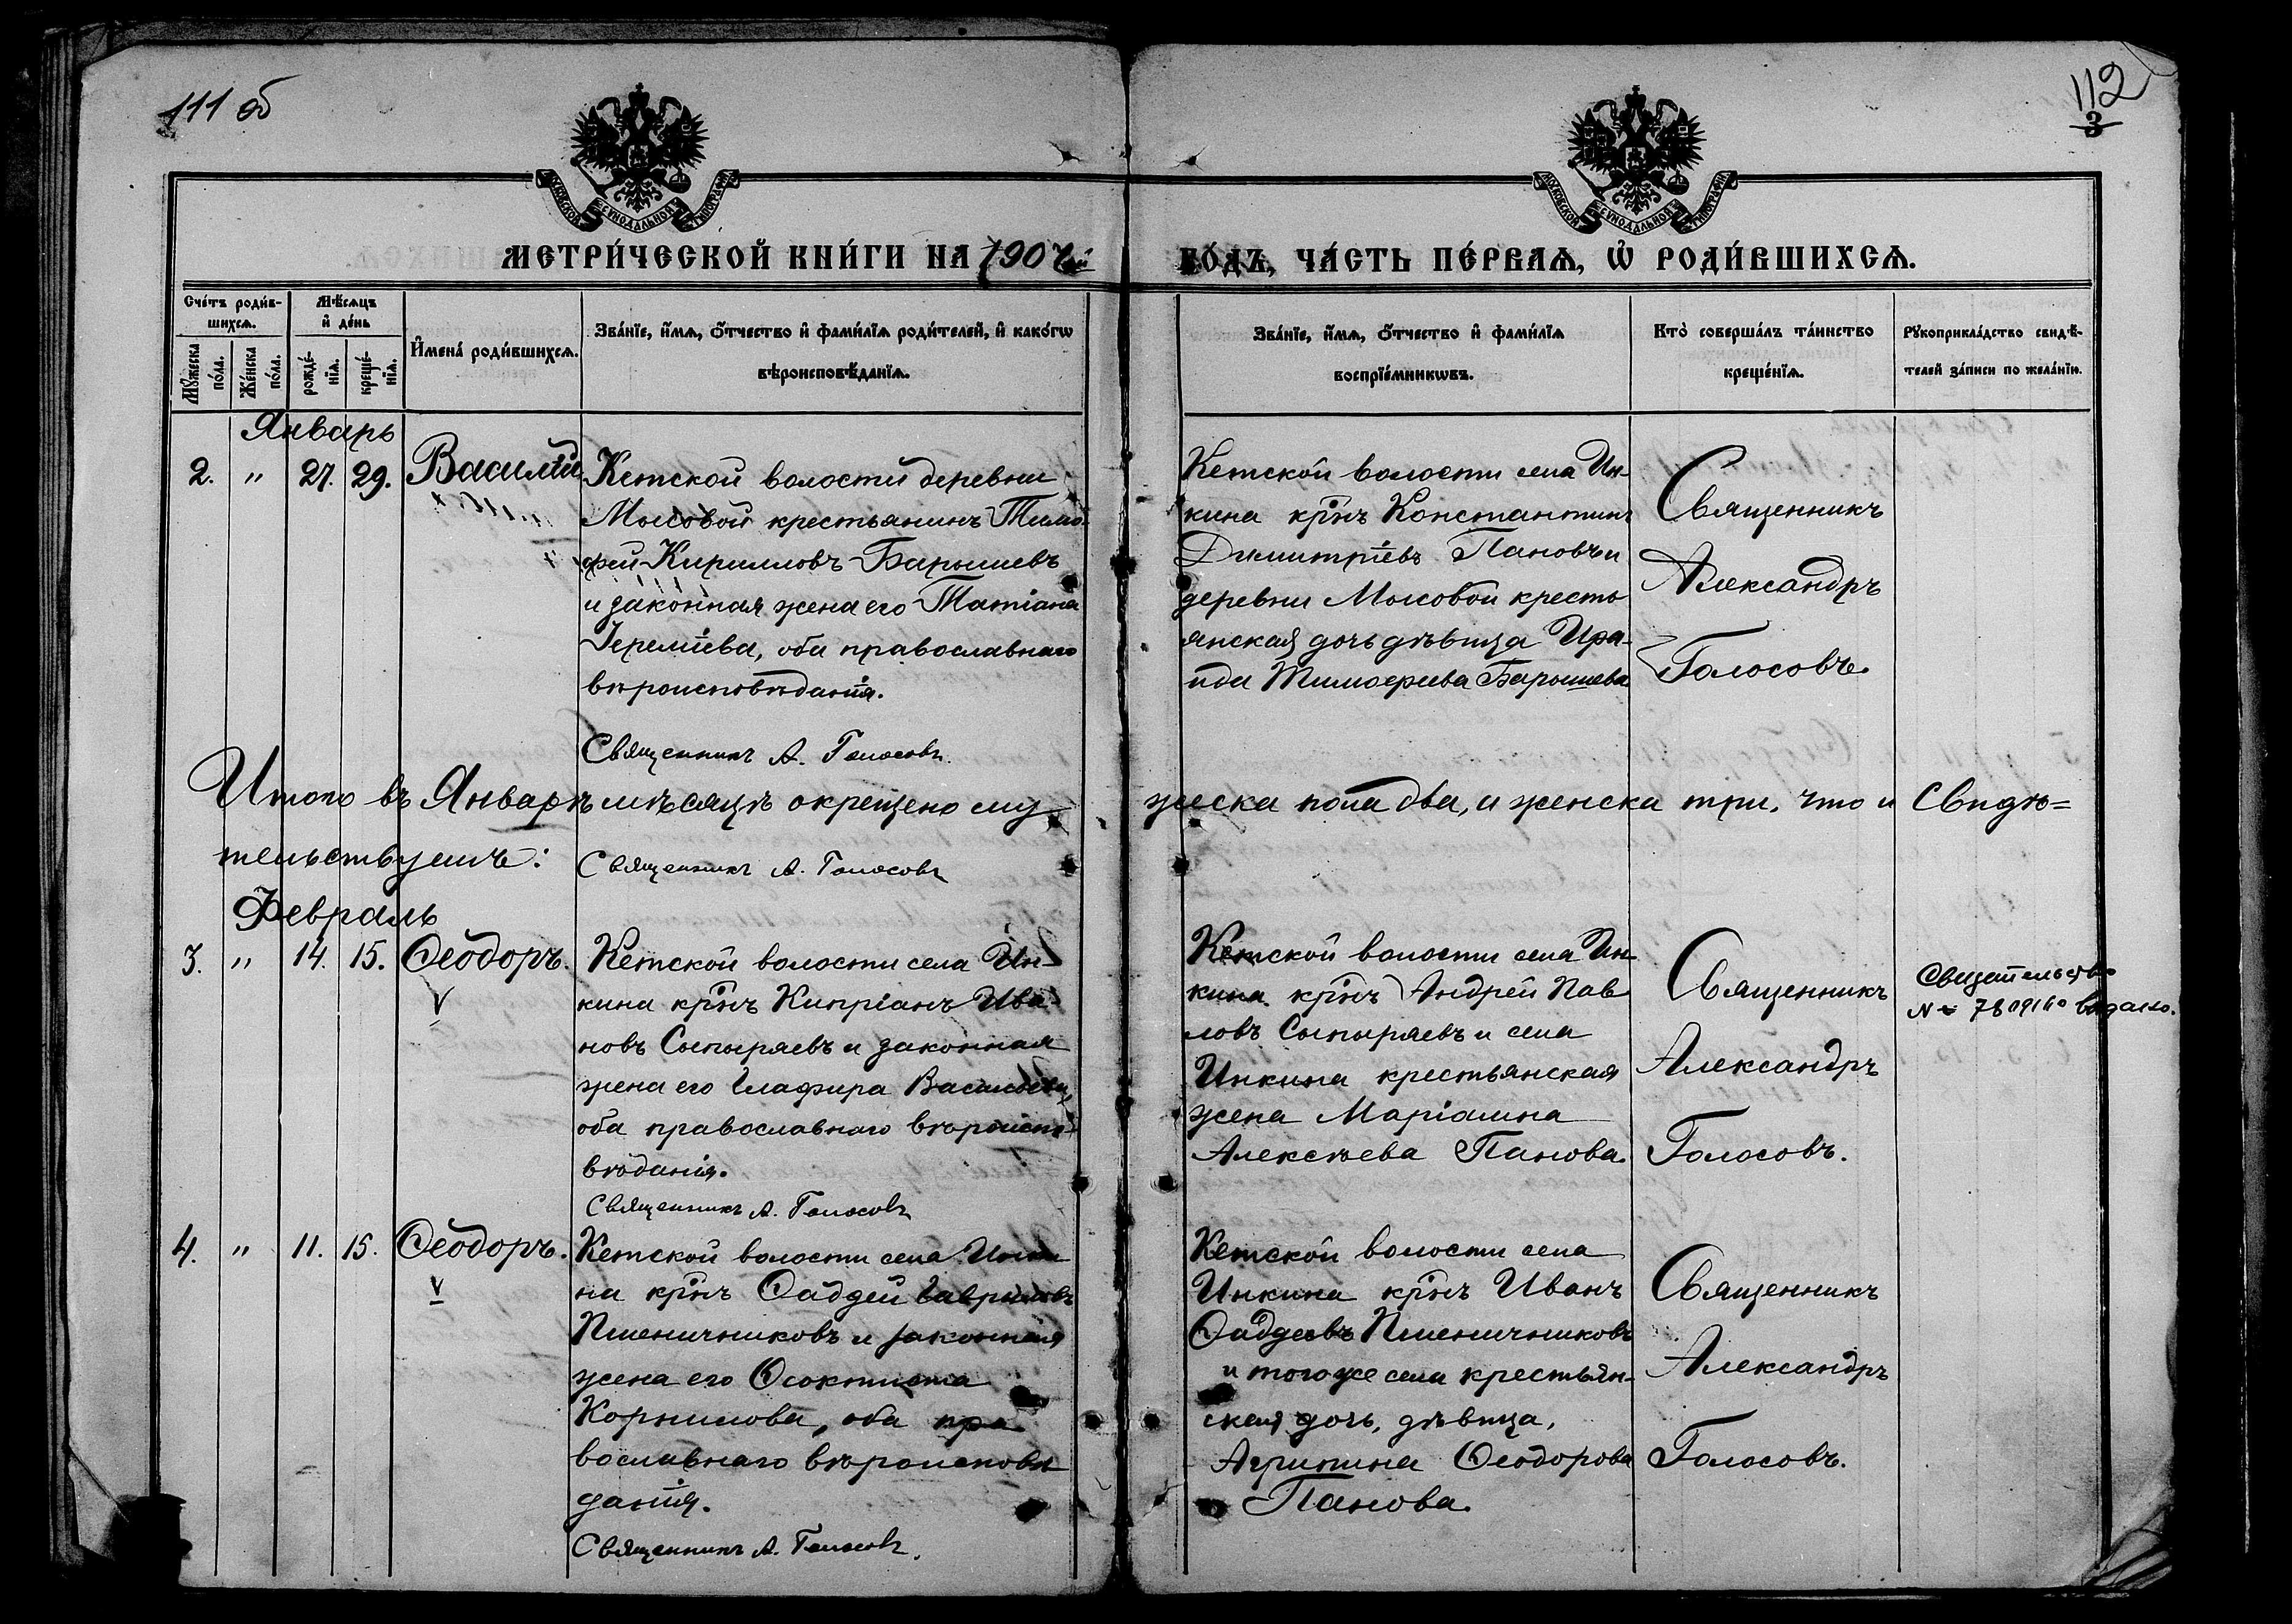 111 об
112
3
МОСКОВСКОЙ СѴНОДАЛЬНОЙ ТИПОГРАФІИ
МОСКОВСКОЙ СѴНОДАЛЬНОЙ ТИПОГРАФІИ
МЕТРИ́ЧЕСКОЙ КНИ́ГИ НА 190
ГО́ДЪ, ЧА́СТЬ ПЕ́РВАѦ, Ѡ҆ РОДИ́ВШИХСѦ.
Сче́тъ роди́в-
шихсѧ.
Мꙋ́жеска по́ла.
Же́нска по́ла.
Мѣ́сѧцъ
и҆ де́нь
рожде́-нїѧ.
креще́-нїѧ.
И҆мена̀ роди́вшихсѧ.
Зва́нїе, и҆́мѧ, ѻ҆́тчество и҆ фами́лїѧ роди́телей, и҆ како́гѡ
вѣроисповѣ́данїѧ.
Зва́нїе, и҆́мѧ, ѻ҆́тчество и҆ фами́лїѧ
воспрїе́мникѡвъ.
Кто̀ соверша́лъ та́инство
креще́нїѧ.
Рꙋкоприкла́дство свидѣ́-
телей за́писи по жела́нїю.
Январь
2. " 27. 29. Василій
Кетской волости деревни
Мысовой крестьянинъ Тимо-
фей Кирилловъ Барышевъ
и законная жена его Татіана
Іереміева, оба православнаго
вѣроисповѣданія.
Священникъ А. Голосовъ.
Кетской волости села Ин-
кина кр̃нъ Константинъ
Димитріевъ Пановъ и
деревни Мысовой кресть-
янская дочь дѣвица Ира-
ида Тимофеева Барышева
Священникъ
Александръ
Голосовъ.
Итого въ Январѣ мѣсяцѣ окрещено му
жеска пола два, и женска три, что и свидѣ=
тельствуемъ:
Священникъ А. Голосовъ
Февраль
3. " 14. 15. Ѳеодоръ.
V
Кетской волости села Ин-
кина кр̃нъ Кипріанъ Ива-
новъ Сыпыряевъ и законная
жена его Глафира Васильева,
оба православнаго вѣроиспо-
вѣданія.
Священникъ А. Голосовъ
Кетской волости села Ин-
кина кр̃нъ Андрей Пав
ловъ Сыпыряевъ и села
Инкина крестьянская
жена Маріамна
Алексѣева Панова.
Священникъ
Александръ
Голосовъ.
Свидѣтельство
№ выдано.
4. " 11. 15. Ѳеодоръ.
V
Кетской волости села Инки
на кр̃нъ Ѳаддей Гавриловъ
Пшеничниковъ и законная
жена его Ѳеоктиста
Корнилова, оба пра
вославнаго вѣроисповѣ
данія.
Священникъ А. Голосовъ.
Кетской волости села
Инкина кр̃нъ Иванъ
Ѳаддеевъ Пшеничниковъ
и того же села крестьян-
ская дочь, дѣвица,
Агрипина Ѳеодорова
Панова.
Священникъ
Александръ
Голосовъ.